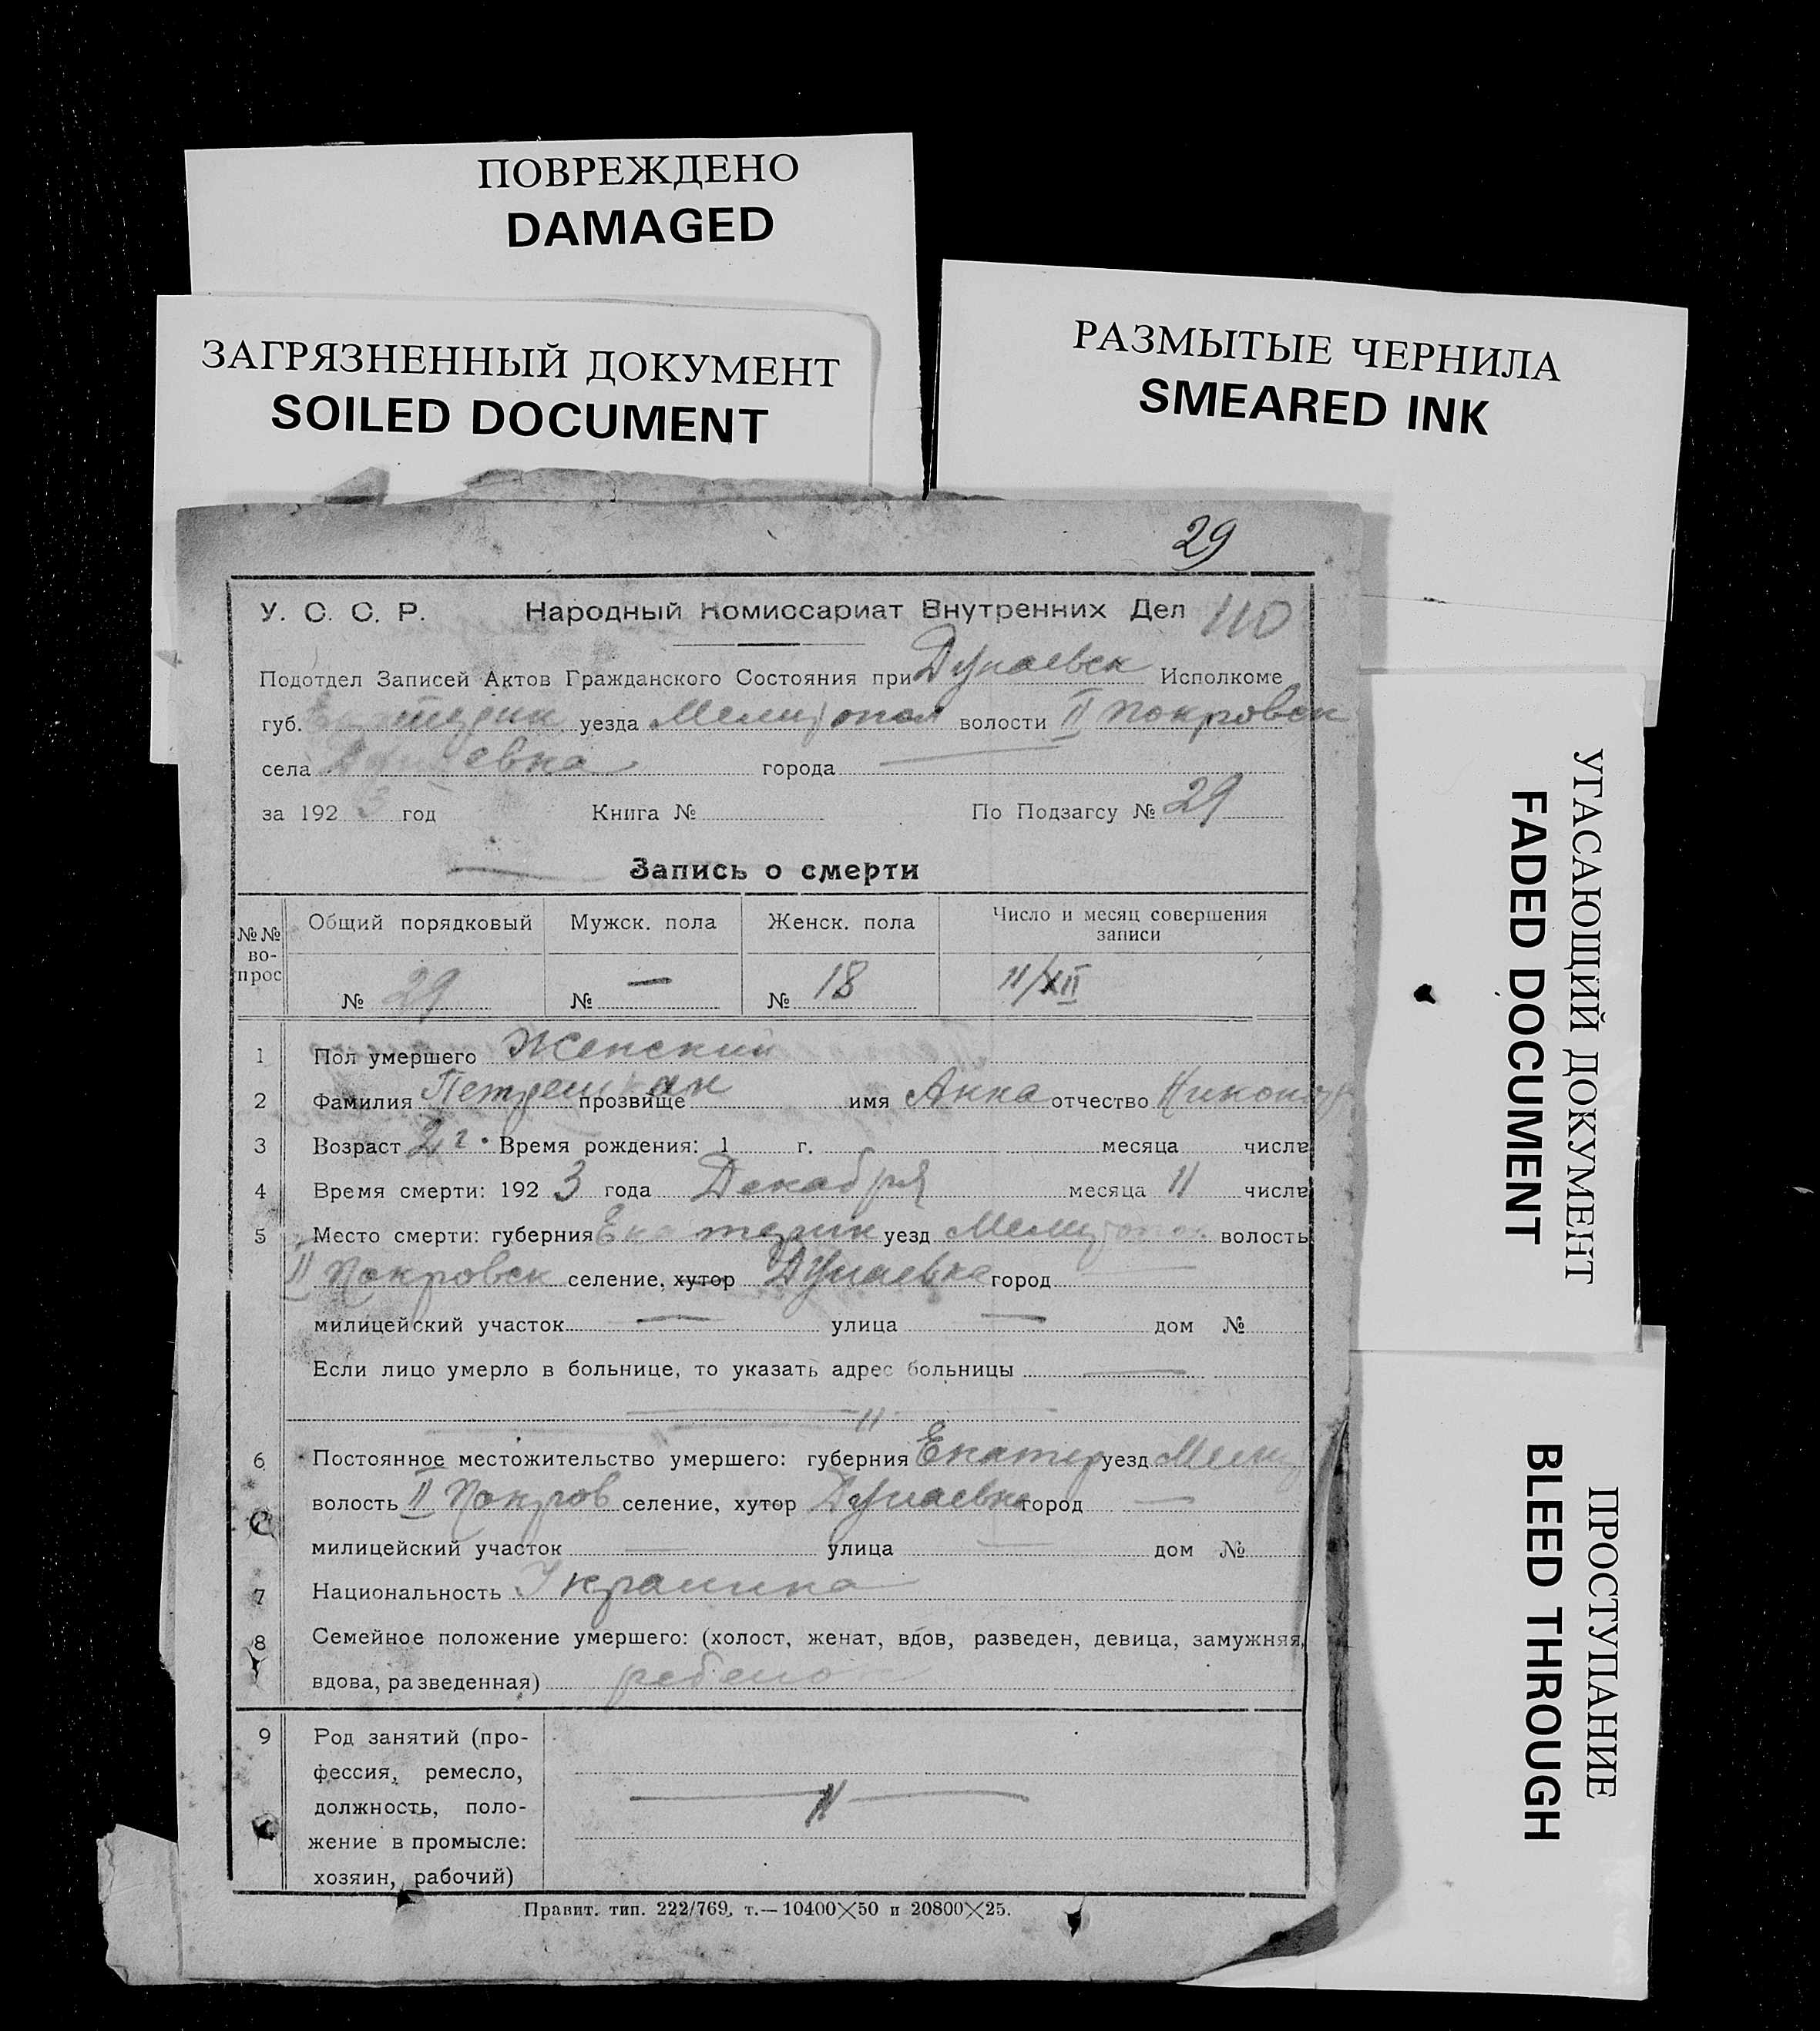 ПОВРЕЖДЕНО
DAMAGED
ЗАГРЯЗНЕННЫЙ ДОКУМЕНТ
SOILED DOCUMENT
РАЗМЫТЫЕ ЧЕРНИЛА
SMEARED INK
УГАСАЮЩИЙ ДОКУМЕНТ
FADED DOCUMENT
ПРОСТУПАНИЕ
BLEED THROUGH
29
У. С. С. Р. Народный Комиссариат Внутренних Дел 110
Подотдел Записей Актов Гражданского Состояния при Дунаевск Исполкоме
губ. Екатерин уезда Мелитопол волости II Покровск
села Дунаевка города —
за 1923 год Книга № По Подзагсу № 29
Запись о смерти
№№ вопрос Общий порядковый Мужск. пола Женск. пола Число и месяц совершения записи
№ 29 № — № 18 11/XII
1 Пол умершего Женский
2 Фамилия прозвище имя Анна отчество
3 Возраст 2 г. Время рождения: 1 г. месяца числа
4 Время смерти: 1923 года Декабря месяца 11 числа
5 Место смерти: губерния Екатерин уезд Мелитопол волость
II Покровск селение, хутор Дунаевка город —
милицейский участок — улица — дом №
Если лицо умерло в больнице, то указать адрес больницы —
— " —
6 Постоянное местожительство умершего: губерния Екатер уезд Мелит
волость II Покров селение, хутор Дунаевка город —
милицейский участок — улица — дом №
7 Национальность Украинка
8 Семейное положение умершего: (холост, женат, вдов, разведен, девица, замужняя,
вдова, разведенная) ребенок
9 Род занятий (про-
фессия, ремесло,
должность, поло- — " —
жение в промысле:
хозяин, рабочий)
Правит. тип. 222/769, т.—10400×50 и 20800×25.